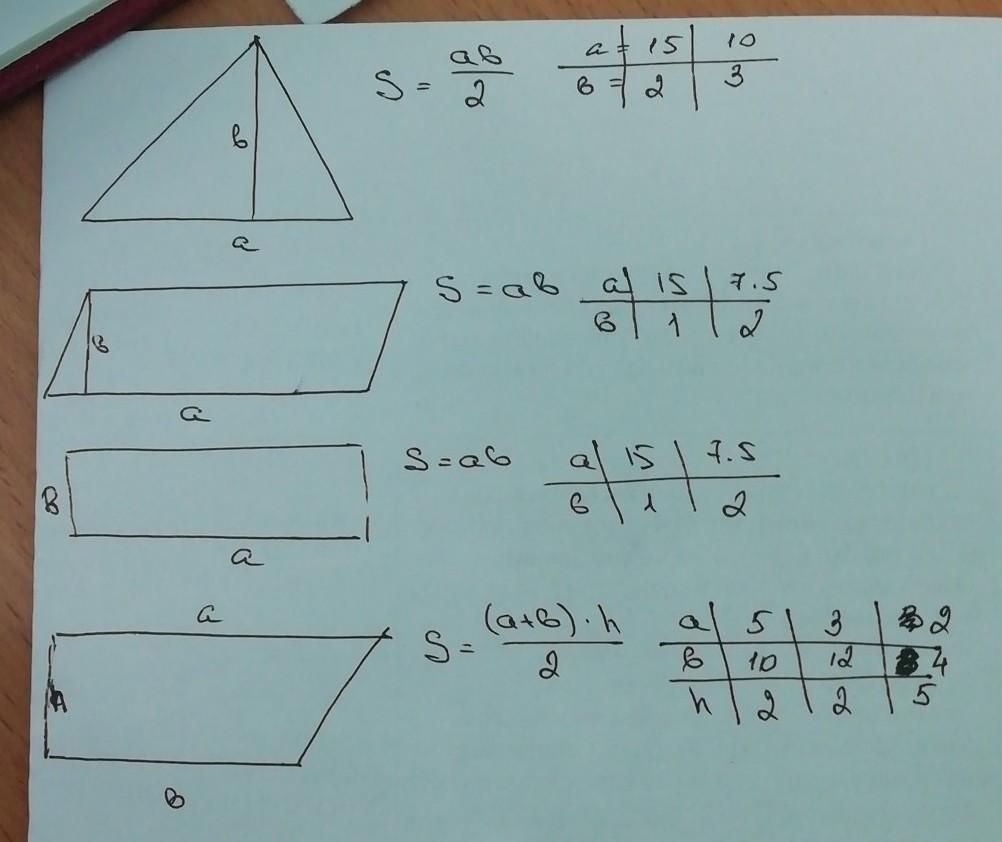 S = ab/2
a = 15 10
b = 2 3
b
a
S = ab
a 15 7.5
b 1 2
b
a
S = ab
a 15 7.5
b 1 2
B
a
a
S = (a+b)·h/2
a 5 3 2
b 10 12 4
h 2 2 5
h
b